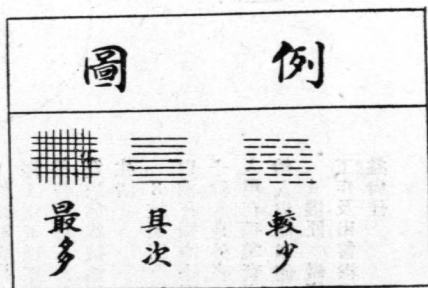 圖例
最多
其次
較少